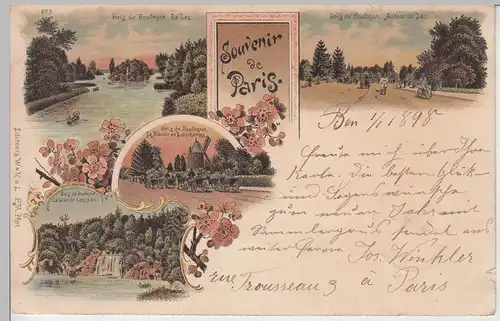 809
Bois de Boulogne Le Lac.
Souvenir
de
Paris.
Bois de Boulogne. Autour du Lac.
Bois de Boulogne.
Le Moulin de Longchamps.
Bois de Boulogne
La Grande Cascade
1/1 1898
Freue mich über Ihre
Karte. Die besten Glück-
und Segenswünsche
zum neuen Jahr mit
Sammlergruss sendet aus
weiter Ferne Jos. Winkler
rue Trousseau 3 à Paris